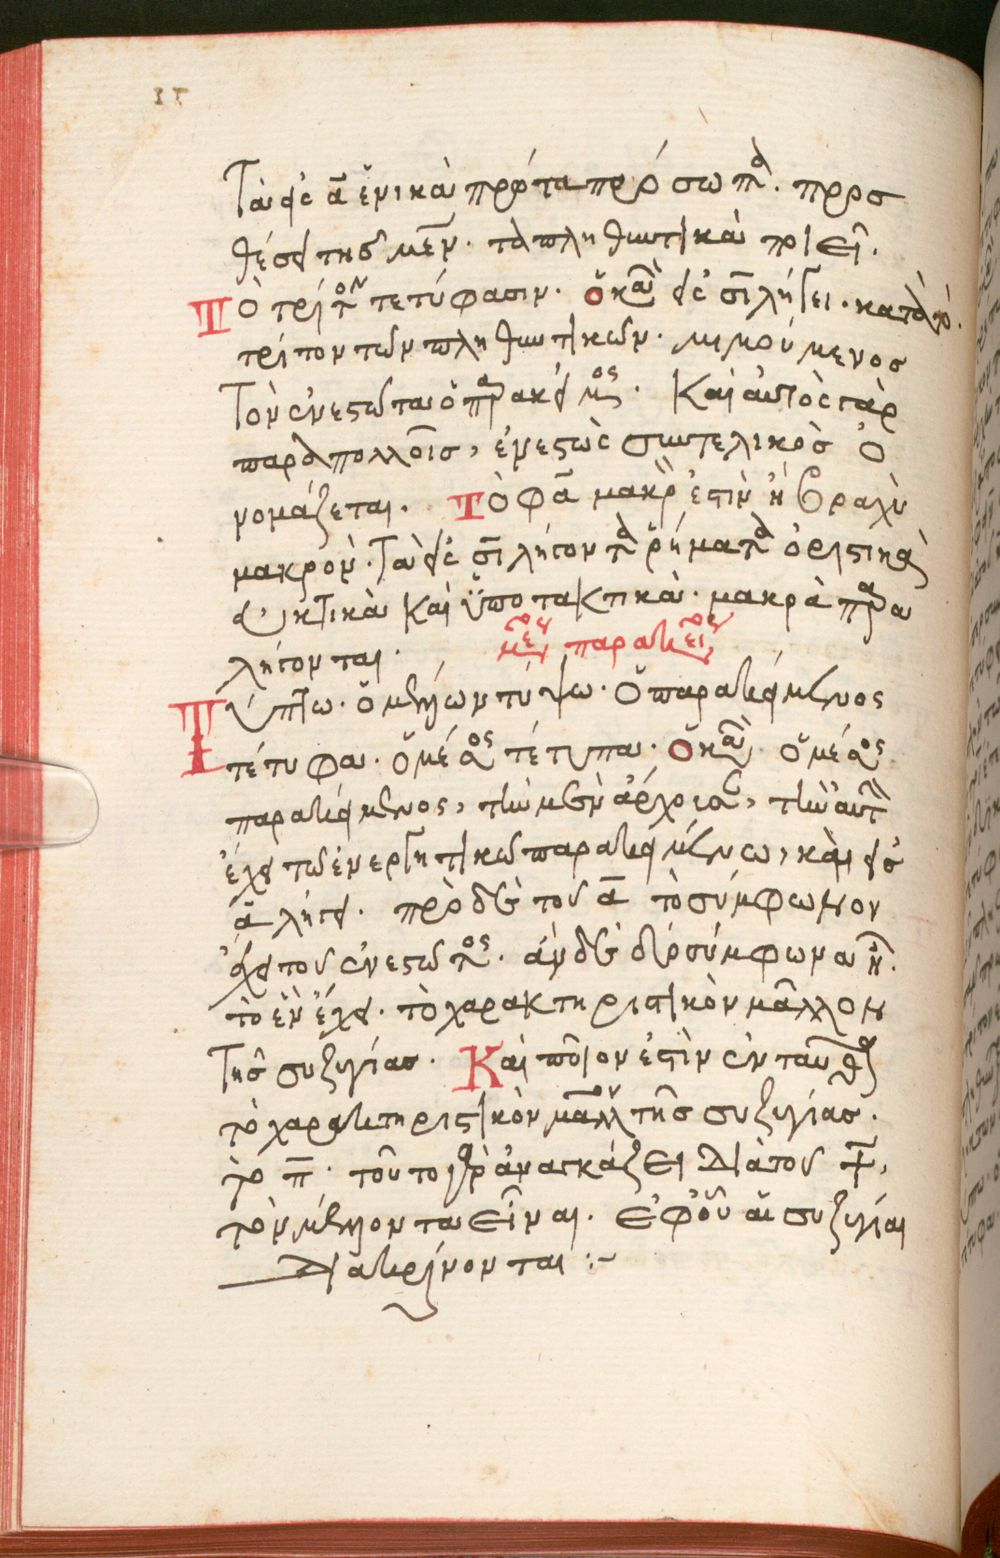 Τὰ δὲ α ἑνικὰ πρῶτα πρόσωπα. προσ
θέσει τῆς μεν. τὰ πληθυντικὰ ποιεῖ.
Τὸ τρίτον τετύφασιν. ὁ κανὼν δὲ διὰ τί λήγει. κατὰ τὸ
τρίτον τῶν πληθυντικῶν. μιμούμενος
Τὸν ἐνεστῶτα ὁ παρακείμενος. Καὶ αὐτὸς γὰρ
παρὰ πολλοῖς, ἐνεστὼς συντελικὸς ὀ
νομάζεται. Τὸ φα μακρόν ἐστιν ἢ βραχὺ
μακρόν. Τὰ δὲ εἰς λήγοντα ῥήματα ὁριστικὰ
εὐκτικὰ καὶ ὑποτακτικὰ. μακρὰ παρα
λήγονται. μέσος παρακείμενος
Τύπτω. ὁ μέλλων τύψω. ὁ παρακείμενος
τέτυφα. ὁ μέσος τέτυπα. ὁ κανών. ὁ μέσος
παρακείμενος, τὴν μὲν ἄρχουσαν, τὴν αὐτὴν
ἔχει τῷ ἐνεργητικῷ παρακειμένω, καὶ εἰς
α λήγει. πρὸ δὲ τοῦ α τὸ σύμφωνον
ἔχει τοῦ ἐνεστῶτος. ἂν δὲ δύο σύμφωνα ἦν.
τὸ ἓν ἔχει. τὸ χαρακτηριστικὸν μᾶλλον
Τῆς συζυγίας. Καὶ ποῖόν ἐστιν ἐνταῦθα
τὸ χαρακτηριστικὸν μᾶλλον τῆς συζυγίας.
τὸ π. τοῦτο γὰρ ἀναγκάζει διὰ τοῦ ψ,
τὸν μέλλοντα εἶναι. ἐφ' οὗ αἱ συζυγίαι
διακρίνονται :~